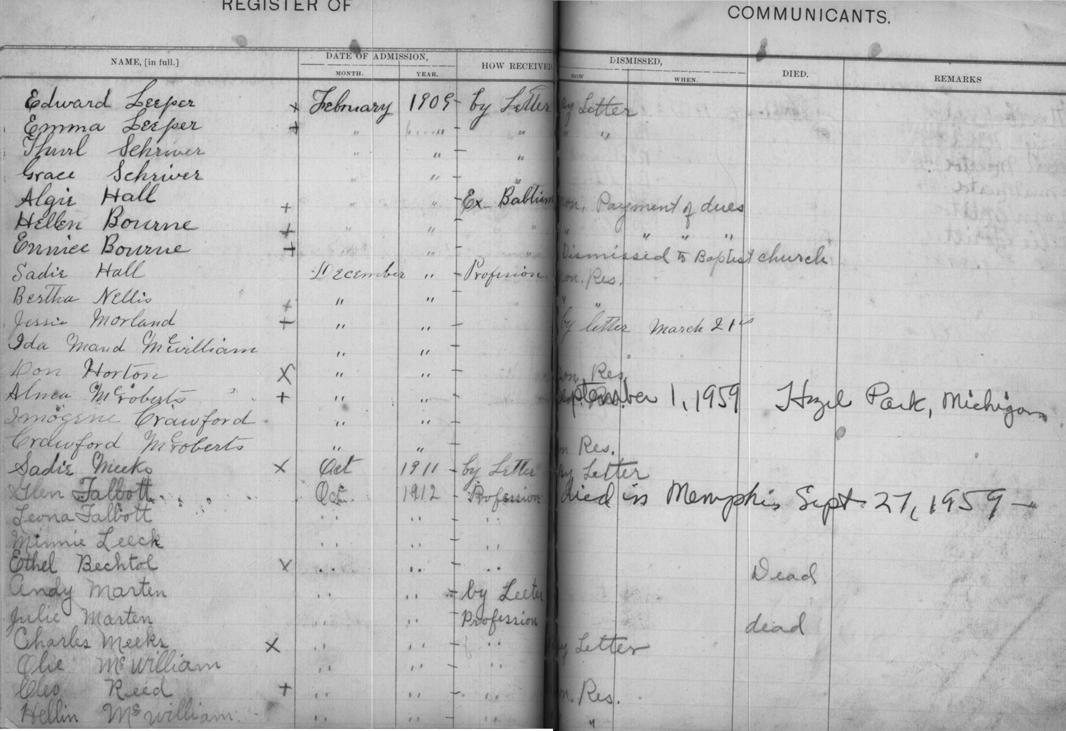 REGISTER OF COMMUNICANTS.
NAME, [in full.] DATE OF ADMISSION, MONTH. YEAR. HOW RECEIVED DISMISSED, HOW WHEN. DIED. REMARKS
Edward Leeper x February 1909 - by Letter by Letter
Emma Leeper + " " " " "
Thurl Schriver " " "
Grace Schriver " " "
Algir Hall + " " Ex. Babtism non. Payment of dues
Hellen Bourne + " " " " " " "
Ennice Bourne + " " " Dismissed to Baptist church
Sadie Hall December " - Profession non. Res.
Bertha Nellis + " " " "
Jessie Morland + " " - by letter March 21st
Ida Maud McWilliam " " -
Don Horton X " " - non Res.
Almea McRoberts + " " - September 1, 1959 Hazel Park, Michigan
Imogene Crawford " " -
Crawford McRoberts " " - n Res.
Sadie Meeks x Oct 1911 - by Letter by Letter
Glen Talbott Oct. 1912 - Profession died in Memphis Sept. 27, 1959 -
Leona Talbott " " - "
Minnie Leeck " " - "
Ethel Bechtol x " " - " Dead
Andy Marten " " - by Leeter
Julie Marten " " Profession dead
Charles Meeks x " " - " by Letter
Olie McWilliam " " - "
Cleo Reed + " " - " n. Res.
Hellin McWilliam " " - " "